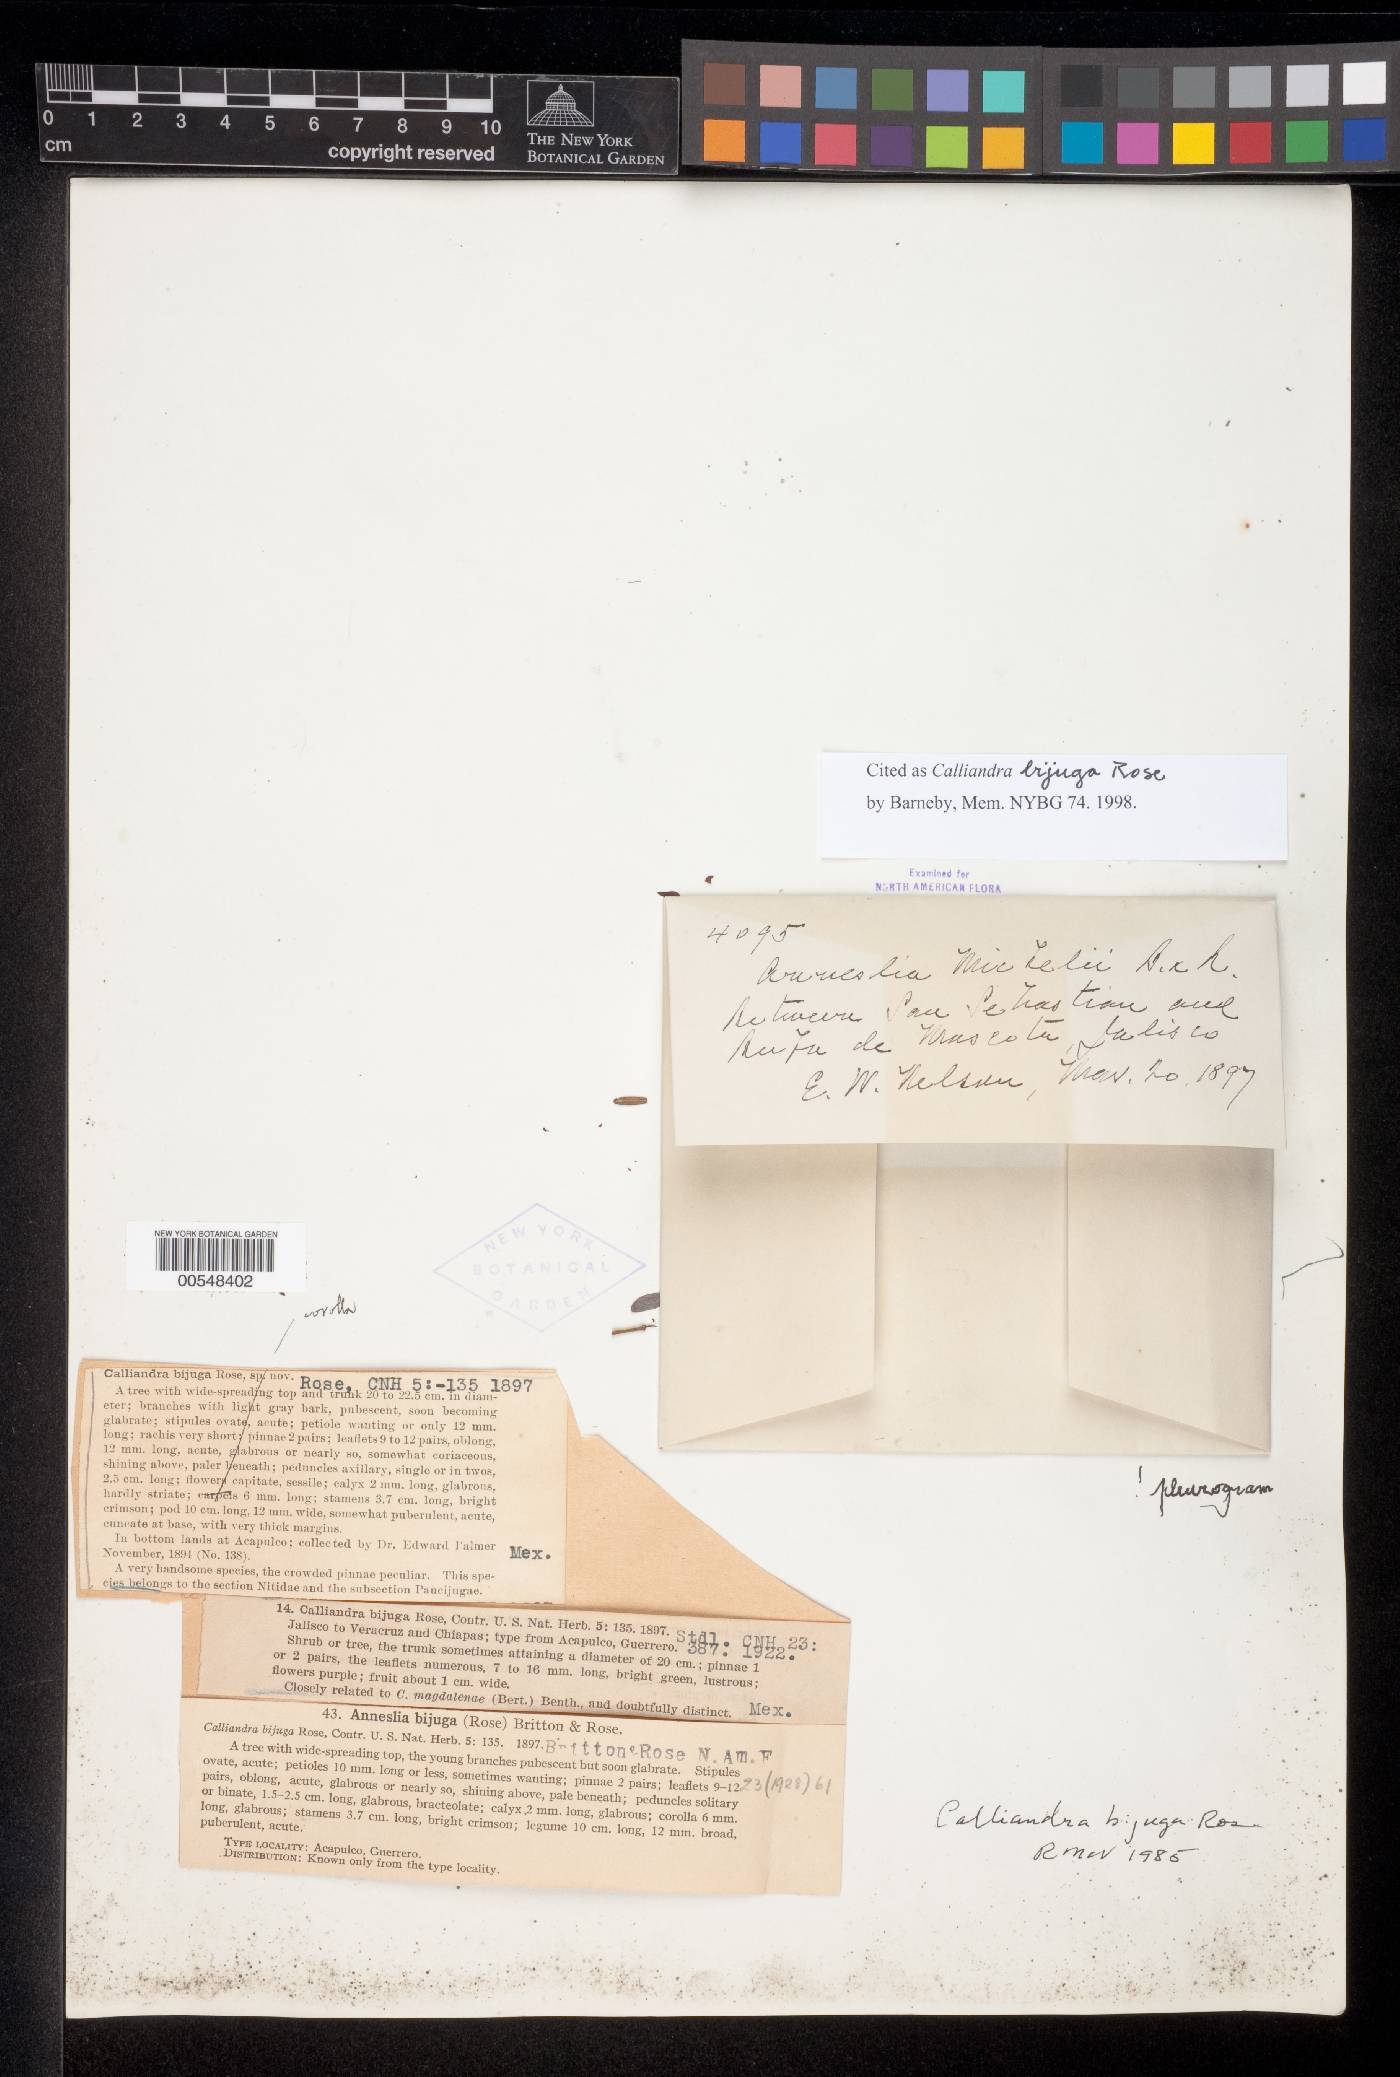 0 1 2 3 4 5 6 7 8 9 10
cm
copyright reserved
THE NEW YORK
BOTANICAL GARDEN
Cited as Calliandra bijuga Rose
by Barneby, Mem. NYBG 74. 1998.
Examined for
NORTH AMERICAN FLORA
4095
Anneslia Michelii B. & R.
Between San Sebastian and
Bufa de Mascota, Jalisco
E. W. Nelson, Mar. 20, 1897
NEW YORK BOTANICAL GARDEN
00548402
NEW YORK
BOTANICAL
GARDEN
corolla
Calliandra bijuga Rose, sp. nov.
Rose, CNH 5:-135 1897
A tree with wide-spreading top and trunk 20 to 22.5 cm. in diam-
eter; branches with light gray bark, pubescent, soon becoming
glabrate; stipules ovate, acute; petiole wanting or only 12 mm.
long; rachis very short; pinnae 2 pairs; leaflets 9 to 12 pairs, oblong,
12 mm. long, acute, glabrous or nearly so, somewhat coriaceous,
shining above, paler beneath; peduncles axillary, single or in twos,
2.5 cm. long; flowers capitate, sessile; calyx 2 mm. long, glabrous,
hardly striate; carpels 6 mm. long; stamens 3.7 cm. long, bright
crimson; pod 10 cm. long, 12 mm. wide, somewhat puberulent, acute,
cuneate at base, with very thick margins.
In bottom lands at Acapulco; collected by Dr. Edward Palmer
November, 1894 (No. 138).
Mex.
A very handsome species, the crowded pinnae peculiar. This spe-
cies belongs to the section Nitidae and the subsection Paucijugae.
! pleurogram
14. Calliandra bijuga Rose, Contr. U. S. Nat. Herb. 5: 135. 1897.
Jalisco to Veracruz and Chiapas; type from Acapulco, Guerrero.
Stdl. CNH 23:
387. 1922.
Shrub or tree, the trunk sometimes attaining a diameter of 20 cm.; pinnae 1
or 2 pairs, the leaflets numerous, 7 to 16 mm. long, bright green, lustrous;
flowers purple; fruit about 1 cm. wide.
Closely related to C. magdalenae (Bert.) Benth., and doubtfully distinct.
Mex.
43. Anneslia bijuga (Rose) Britton & Rose.
Calliandra bijuga Rose, Contr. U. S. Nat. Herb. 5: 135. 1897.
Britton & Rose N. Am. F
23 (1928) 61
A tree with wide-spreading top, the young branches pubescent but soon glabrate. Stipules
ovate, acute; petioles 10 mm. long or less, sometimes wanting; pinnae 2 pairs; leaflets 9–12
pairs, oblong, acute, glabrous or nearly so, shining above, pale beneath; peduncles solitary
or binate, 1.5–2.5 cm. long, glabrous, bracteolate; calyx 2 mm. long, glabrous; corolla 6 mm.
long, glabrous; stamens 3.7 cm. long, bright crimson; legume 10 cm. long, 12 mm. broad,
puberulent, acute.
TYPE LOCALITY: Acapulco, Guerrero.
DISTRIBUTION: Known only from the type locality.
Calliandra bijuga Rose
R McV 1985